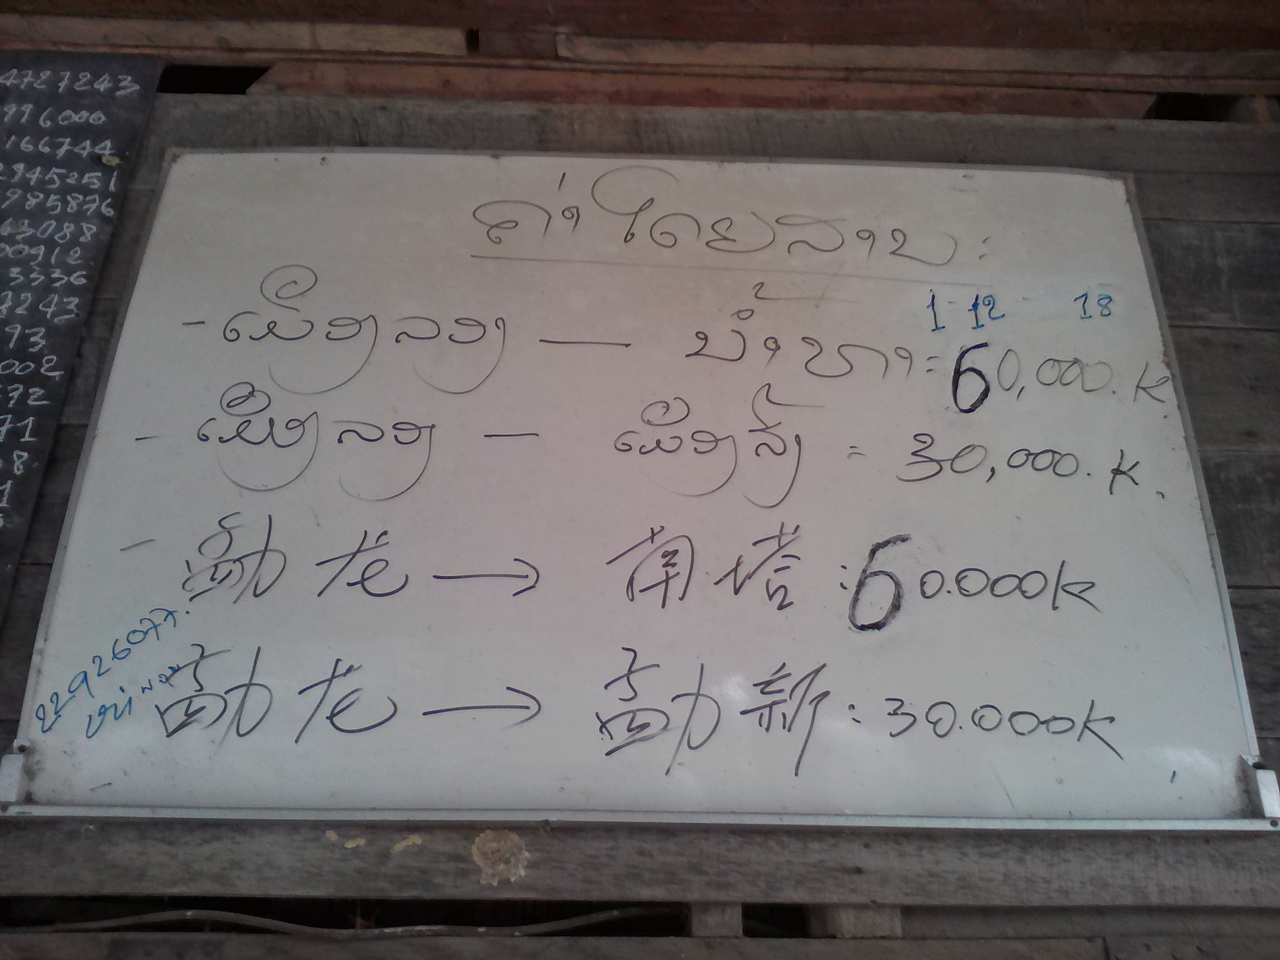 4727243
996000
166744
2945251
985876
63088
00912
3336
7243
93
002
72
71
8
1
ຄ່າໂດຍສານ:
1 12 18
- ເມືອງລອງ — ນ້ຳທາ: 60,000.K
- ເມືອງລອງ - ເມືອງສິງ = 30,000.K.
- 勐龙 → 南塔: 60.000K
勐龙 → 勐新: 30.000K
22926077.